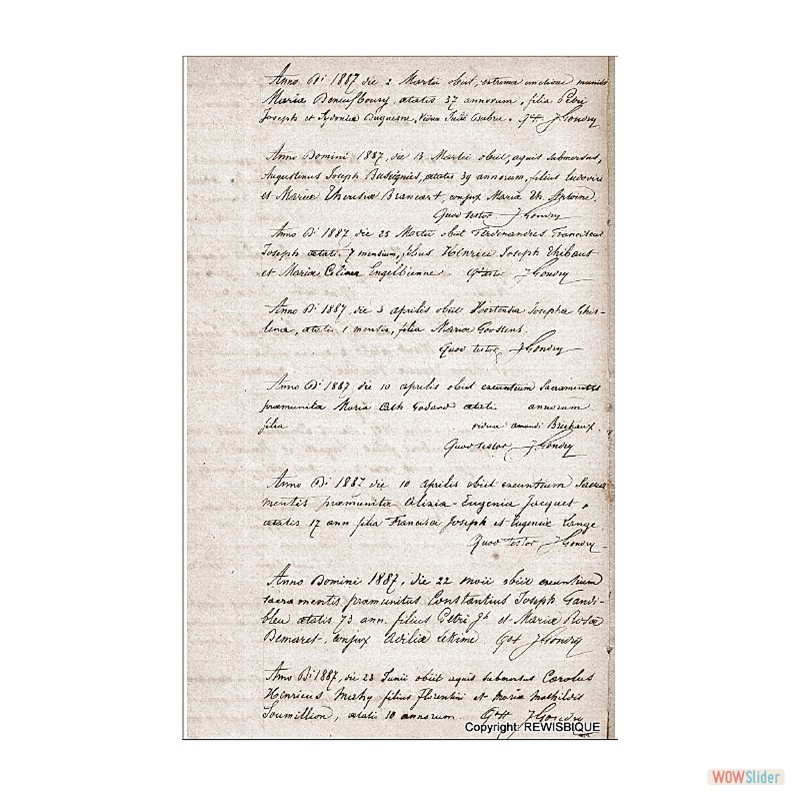 Anno Di 1887 die 2 Martii obiit, extrema unctione munita
Maria aetatis 37 annorum, filia Petri
Joseph et Sydonia Duquesne, vidua Gondry
Anno Domini 1887, die 13 Martii obiit, aquis submersus,
Augustinus Joseph Busignies, aetatis 39 annorum, filius Ludovici
et Mariae Theresiae Brancart, conjux Maria Th. Antoine.
Quod testor J Gondry
Anno Di 1887 die 25 Martii obiit Ferdinandus Franciscus
Joseph aetatis 7 mensium, filius Henrici Joseph Thibaut
et Mariae Celinae Engelbienne J Gondry
Anno Di 1887, die 3 aprilis obiit Hortensia Josepha Ghis-
lina, aetatis 1 mensis, filia Mariae Goossens.
Quod testor J Gondry
Anno Di 1887 die 10 aprilis obiit exeuntium Sacramentis
praemunita Maria Cath Godard aetatis annorum
filia vidua amandi
Quod testor J Gondry
Anno Di 1887 die 10 aprilis obiit exeuntium Sacra
mentis praemunita Alixia-Eugenia Jacquet,
aetatis 17 ann filia Francisci Joseph et Eugenia Lange
Quod testor J Gondry
Anno Domini 1887, die 22 maii obiit exeuntium
sacramentis praemunitus Constantius Joseph Gandi-
bleu aetatis 73 ann. filius Petri Jh et Mariae Rosae
Demaret, conjux J Gondry
Anno Di 1887, die 23 Junii obiit aquis submersus Carolus
Henricus Mahy filius Florentini et Maria Mathildis
Soumillion, aetatis 10 annorum. J Gondry
Copyright: REWISBIQUE
WOWSlider